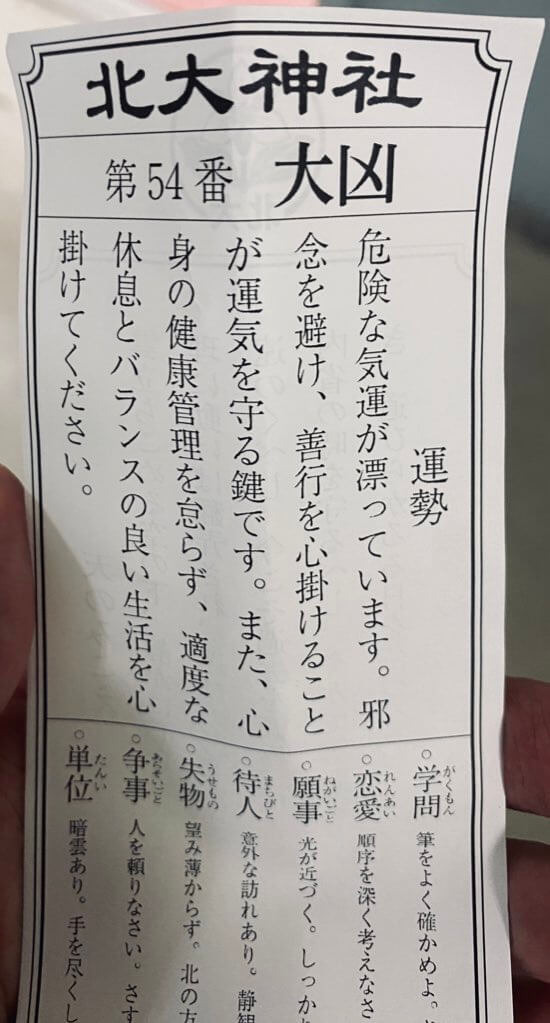 北大神社
第54番 大凶
運勢
危険な気運が漂っています。邪
念を避け、善行を心掛けること
が運気を守る鍵です。また、心
身の健康管理を怠らず、適度な
休息とバランスの良い生活を心
掛けてください。
○学問 がくもん 筆をよく確かめよ。
○恋愛 れんあい 順序を深く考えなさ
○願事 ねがいごと 光が近づく。しっかり
○待人 まちびと 意外な訪れあり。静観
○失物 うせもの 望み薄からず。北の方
○争事 あらそいごと 人を頼りなさい。さす
○単位 たんい 暗雲あり。手を尽くし